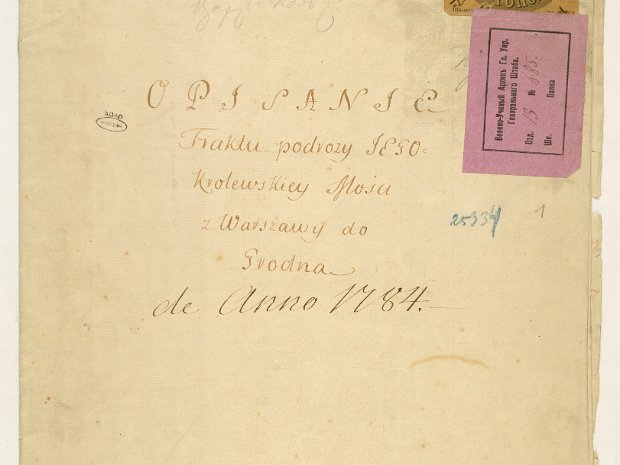 OPISANIE
Traktu podrozy IEGO-
Krolewskiey Mosci
z Warszawy do
Grodna
de Anno 1784.
25334
1
AGAD
Военно-Ученый Архивъ Гл. Упр.
Генеральнаго Штаба.
Отд. 13 № 635.
Шк. Полка